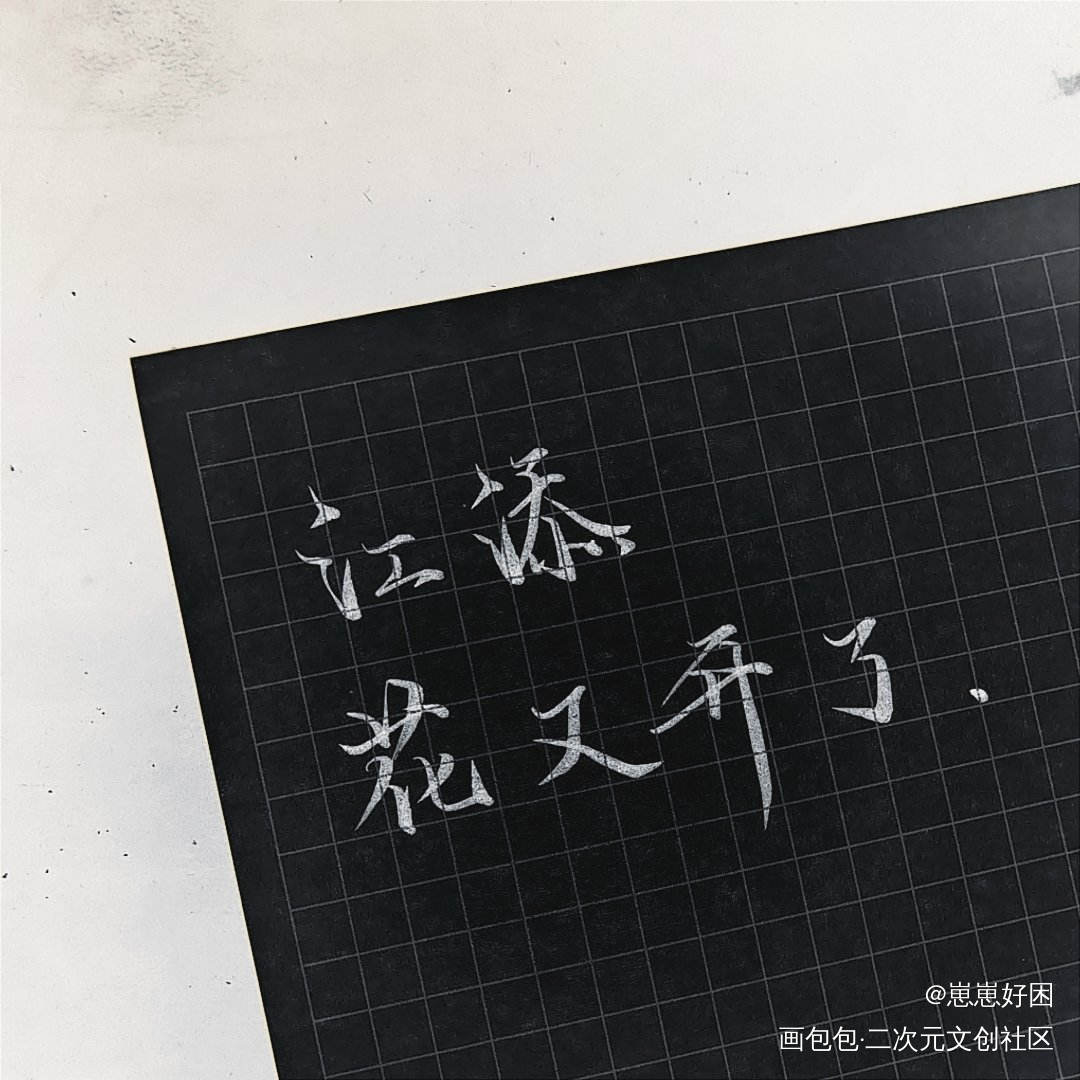 江添
花又开了.
@崽崽好困
画包包·二次元文创社区